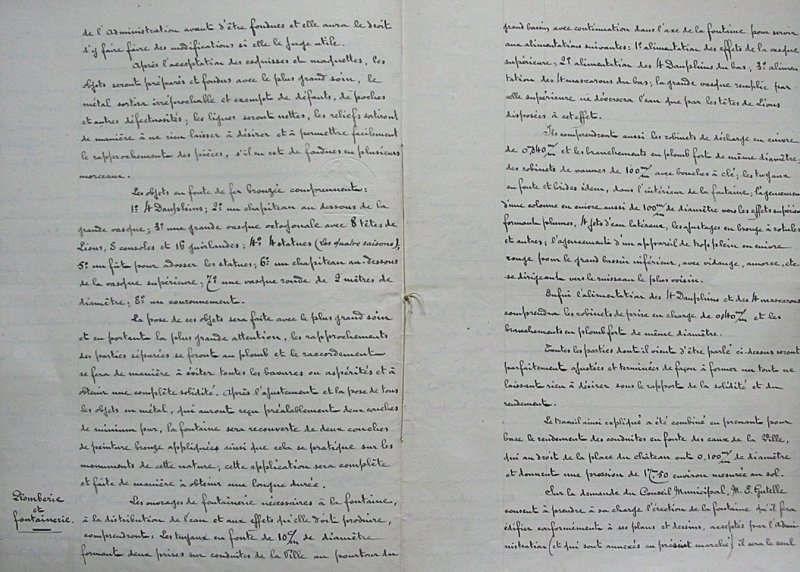 de l'Administration avant d'être fondues et elle aura le droit
d'y faire faire des modifications si elle le juge utile.
Après l'acceptation des esquisses et maquettes, les
objets seront préparés et fondus avec le plus grand soin, le
métal sortira irréprochable et exempt de défauts, de poches
et autres défectuosités; les lignes seront nettes, les reliefs sortiront
de manière à ne rien laisser à désirer et à permettre facilement
le rapprochement des pièces, s'il en est de fondues en plusieurs
morceaux.
Les objets en fonte de fer bronzée comprennent:
1º 4 Dauphins; 2º un chapiteau au dessous de la
grande vasque; 3º une grande vasque octogonale avec 8 têtes de
Lions, 8 consoles et 16 guirlandes; 4º 4 statues (les quatre saisons);
5º un fût pour adosser les statues; 6º un chapiteau au-dessous
de la vasque supérieure; 7º une vasque ronde de 2 mètres de
diamètre; 8º un couronnement.
La pose de ces objets sera faite avec le plus grand soin
et en portant la plus grande attention, les rapprochements
des parties séparées se feront au plomb et le raccordement
se fera de manière à éviter toutes les bavures ou aspérités et à
obtenir une complète solidité. Après l'ajustement et la pose de tous
les objets en métal, qui auront reçu préalablement deux couches
de minium pur, la fontaine sera recouverte de deux couches
de peinture bronze appliquées ainsi que cela se pratique sur les
monuments de cette nature; cette application sera complète
et faite de manière à obtenir une longue durée.
Plomberie
et
fontainerie.
Les ouvrages de fontainerie nécessaires à la fontaine,
à la distribution de l'eau et aux effets qu'elle doit produire,
comprendront: Les tuyaux en fonte de 10 c/m de diamètre
formant deux prises sur conduites de la Ville au pourtour du
grand bassin avec continuation dans l'axe de la fontaine pour servir
aux alimentations suivantes: 1º alimentation des effets de la vasque
supérieure; 2º alimentation des 4 Dauphins du bas; 3º alimen
tation des 4 mascarons du bas; la grande vasque remplie par
celle supérieure ne déversera l'eau que par les têtes de Lions
disposées à cet effet.
Ils comprendront aussi les robinets de décharge en cuivre
de 0,040 m/m et les branchements en plomb fort de même diamètre;
des robinets de vannes de 100 m/m avec bouches à clé; les tuyaux
en fonte et brides idem, dans l'intérieur de la fontaine; l'agencement
d'une colonne en cuivre aussi de 100 m/m de diamètre vers les effets supérieurs
formant plumes, 4 jets d'eau latéraux, les ajutages en bronze à rotules
et autres; l'agencement d'un appareil de trop plein en cuivre
rouge pour le grand bassin inférieur, avec vidange, amorce, etc.
se dirigeant vers le ruisseau le plus voisin.
Enfin l'alimentation des 4 Dauphins et des 4 mascarons
comprendra les robinets de prise en charge de 0,40 m/m et les
branchements en plomb fort de même diamètre.
Toutes les parties dont il vient d'être parlé ci-dessus seront
parfaitement ajustées et terminées de façon à former un tout ne
laissant rien à désirer sous le rapport de la solidité et du
rendement.
Le travail ainsi expliqué a été combiné en prenant pour
base le rendement des conduites en fonte des eaux de la Ville,
qui au droit de la place du château ont 0,100 m/m de diamètre
et donnent une pression de 17 m,50 environ mesurée au sol.
Sur la demande du Conseil Municipal, M. E. Gutelle
consent à prendre à sa charge l'érection de la fontaine qu'il fera
édifier conformément à ses plans et dessins, acceptés par l'Admi-
nistration (et qui sont annexés au présent marché) il sera le seul